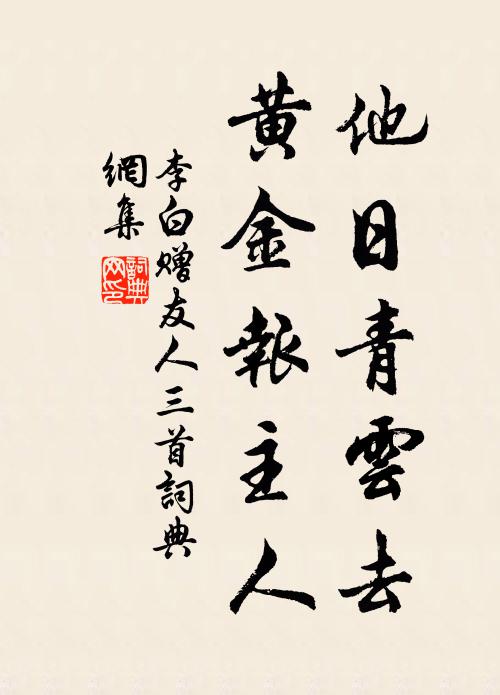 他日青雲去
黃金報主人
李白贈友人三首詞典
網集
詞典
网印